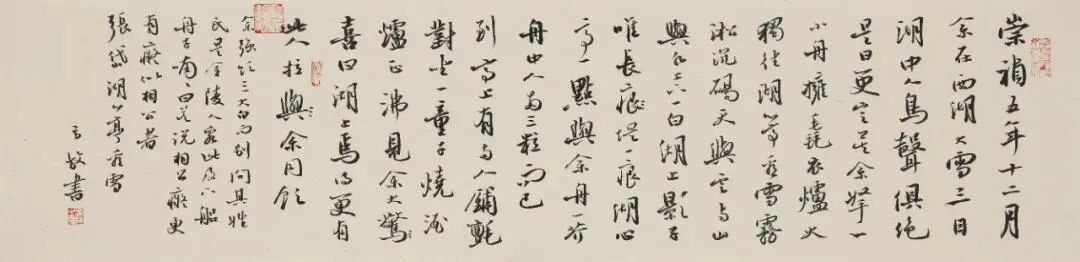 崇禎五年十二月
余在西湖大雪三日
湖中人鳥聲俱絕
是日更定矣余拏一
小舟擁毳衣爐火
獨往湖心亭看雪霧
淞沆碭天與雲與山
與水上下一白湖上影子
唯長痕堤一痕湖心
亭一點與余舟一芥
舟中人兩三粒而已
到亭上有兩人鋪氈
對坐一童子燒酒
爐正沸見余大驚
喜曰湖上焉得更有
此人拉與余同飲
余強飲三大白而別問其姓
氏是金陵人客此及下船
舟子喃喃曰莫說相公癡更
有癡似相公者
張岱湖心亭看雪
書